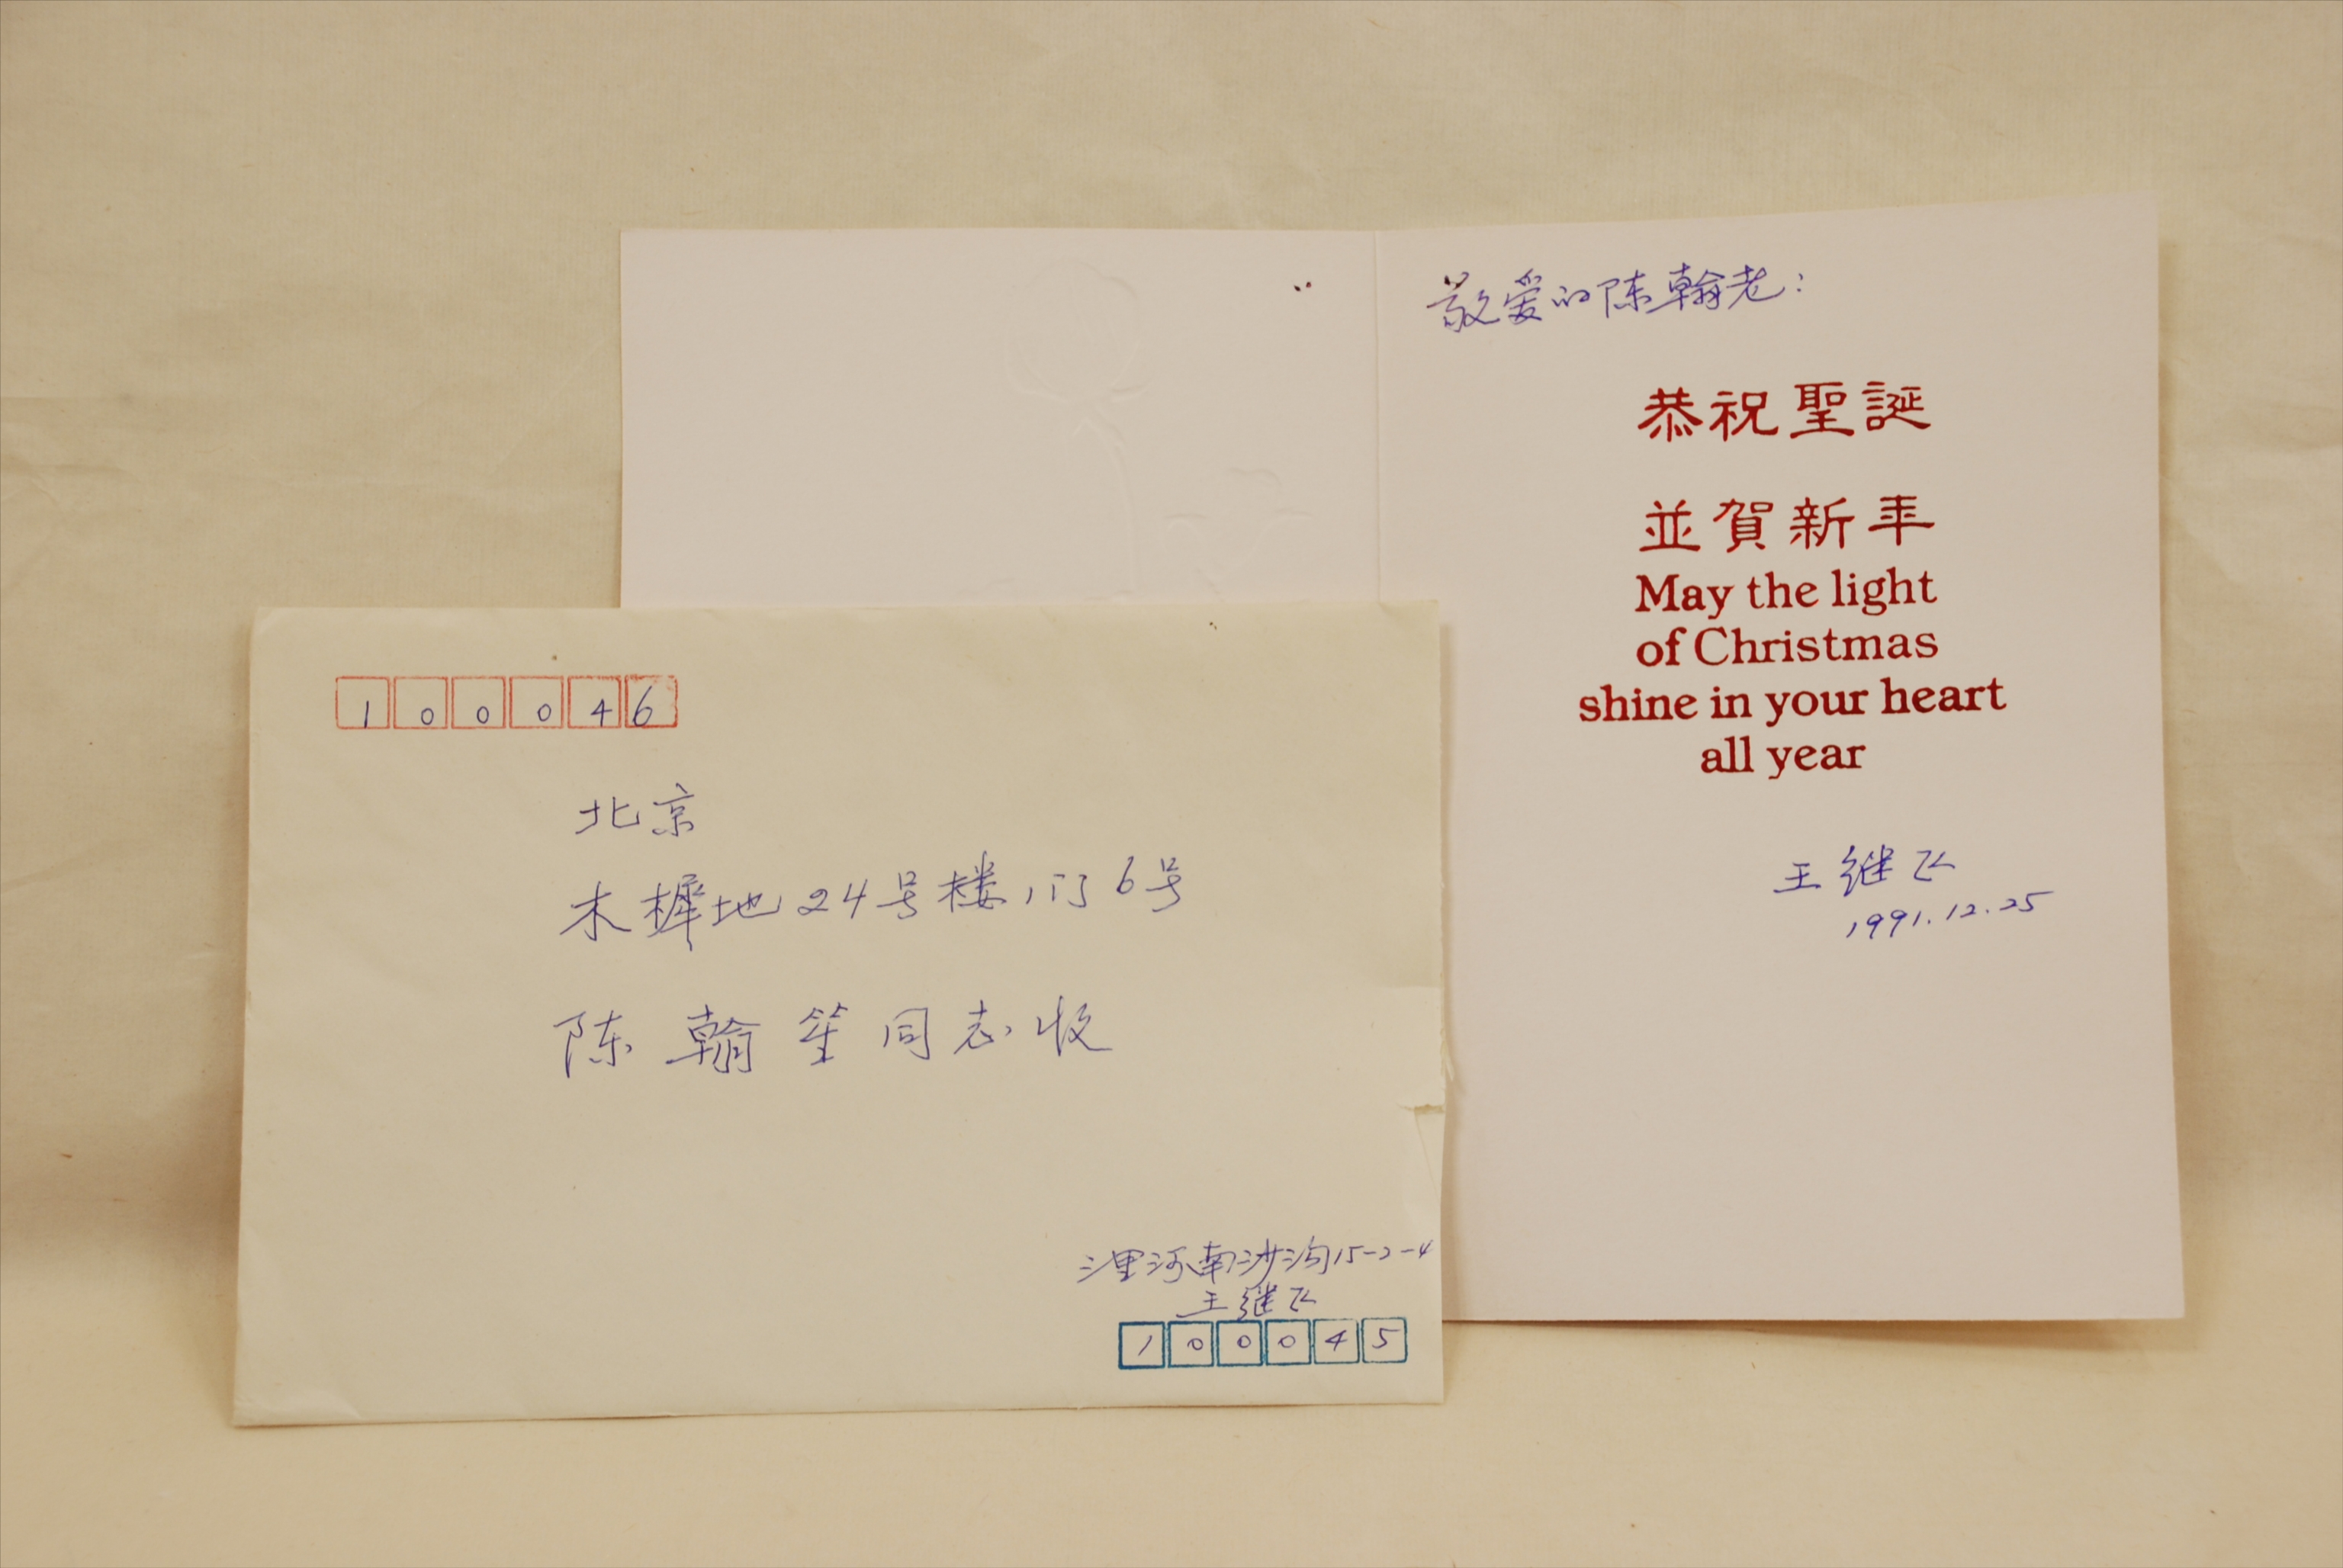 100046
北京
木樨地24号楼1门6号
陈翰笙同志收
三里河南沙沟15-2-4
王继飞
100045
敬爱的陈翰老：
恭祝聖誕
並賀新年
May the light
of Christmas
shine in your heart
all year
王继飞
1991.12.25